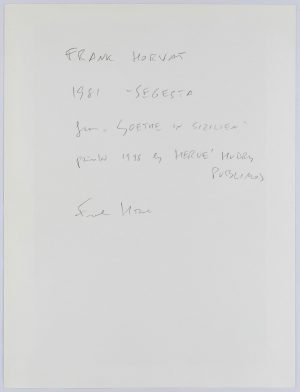 FRANK HORVAT
1981 - SEGESTA
from "GOETHE IN SIZILIEN"
printed 1998 by HERVÉ HUDRY
PUBLIMOD
Frank Horvat